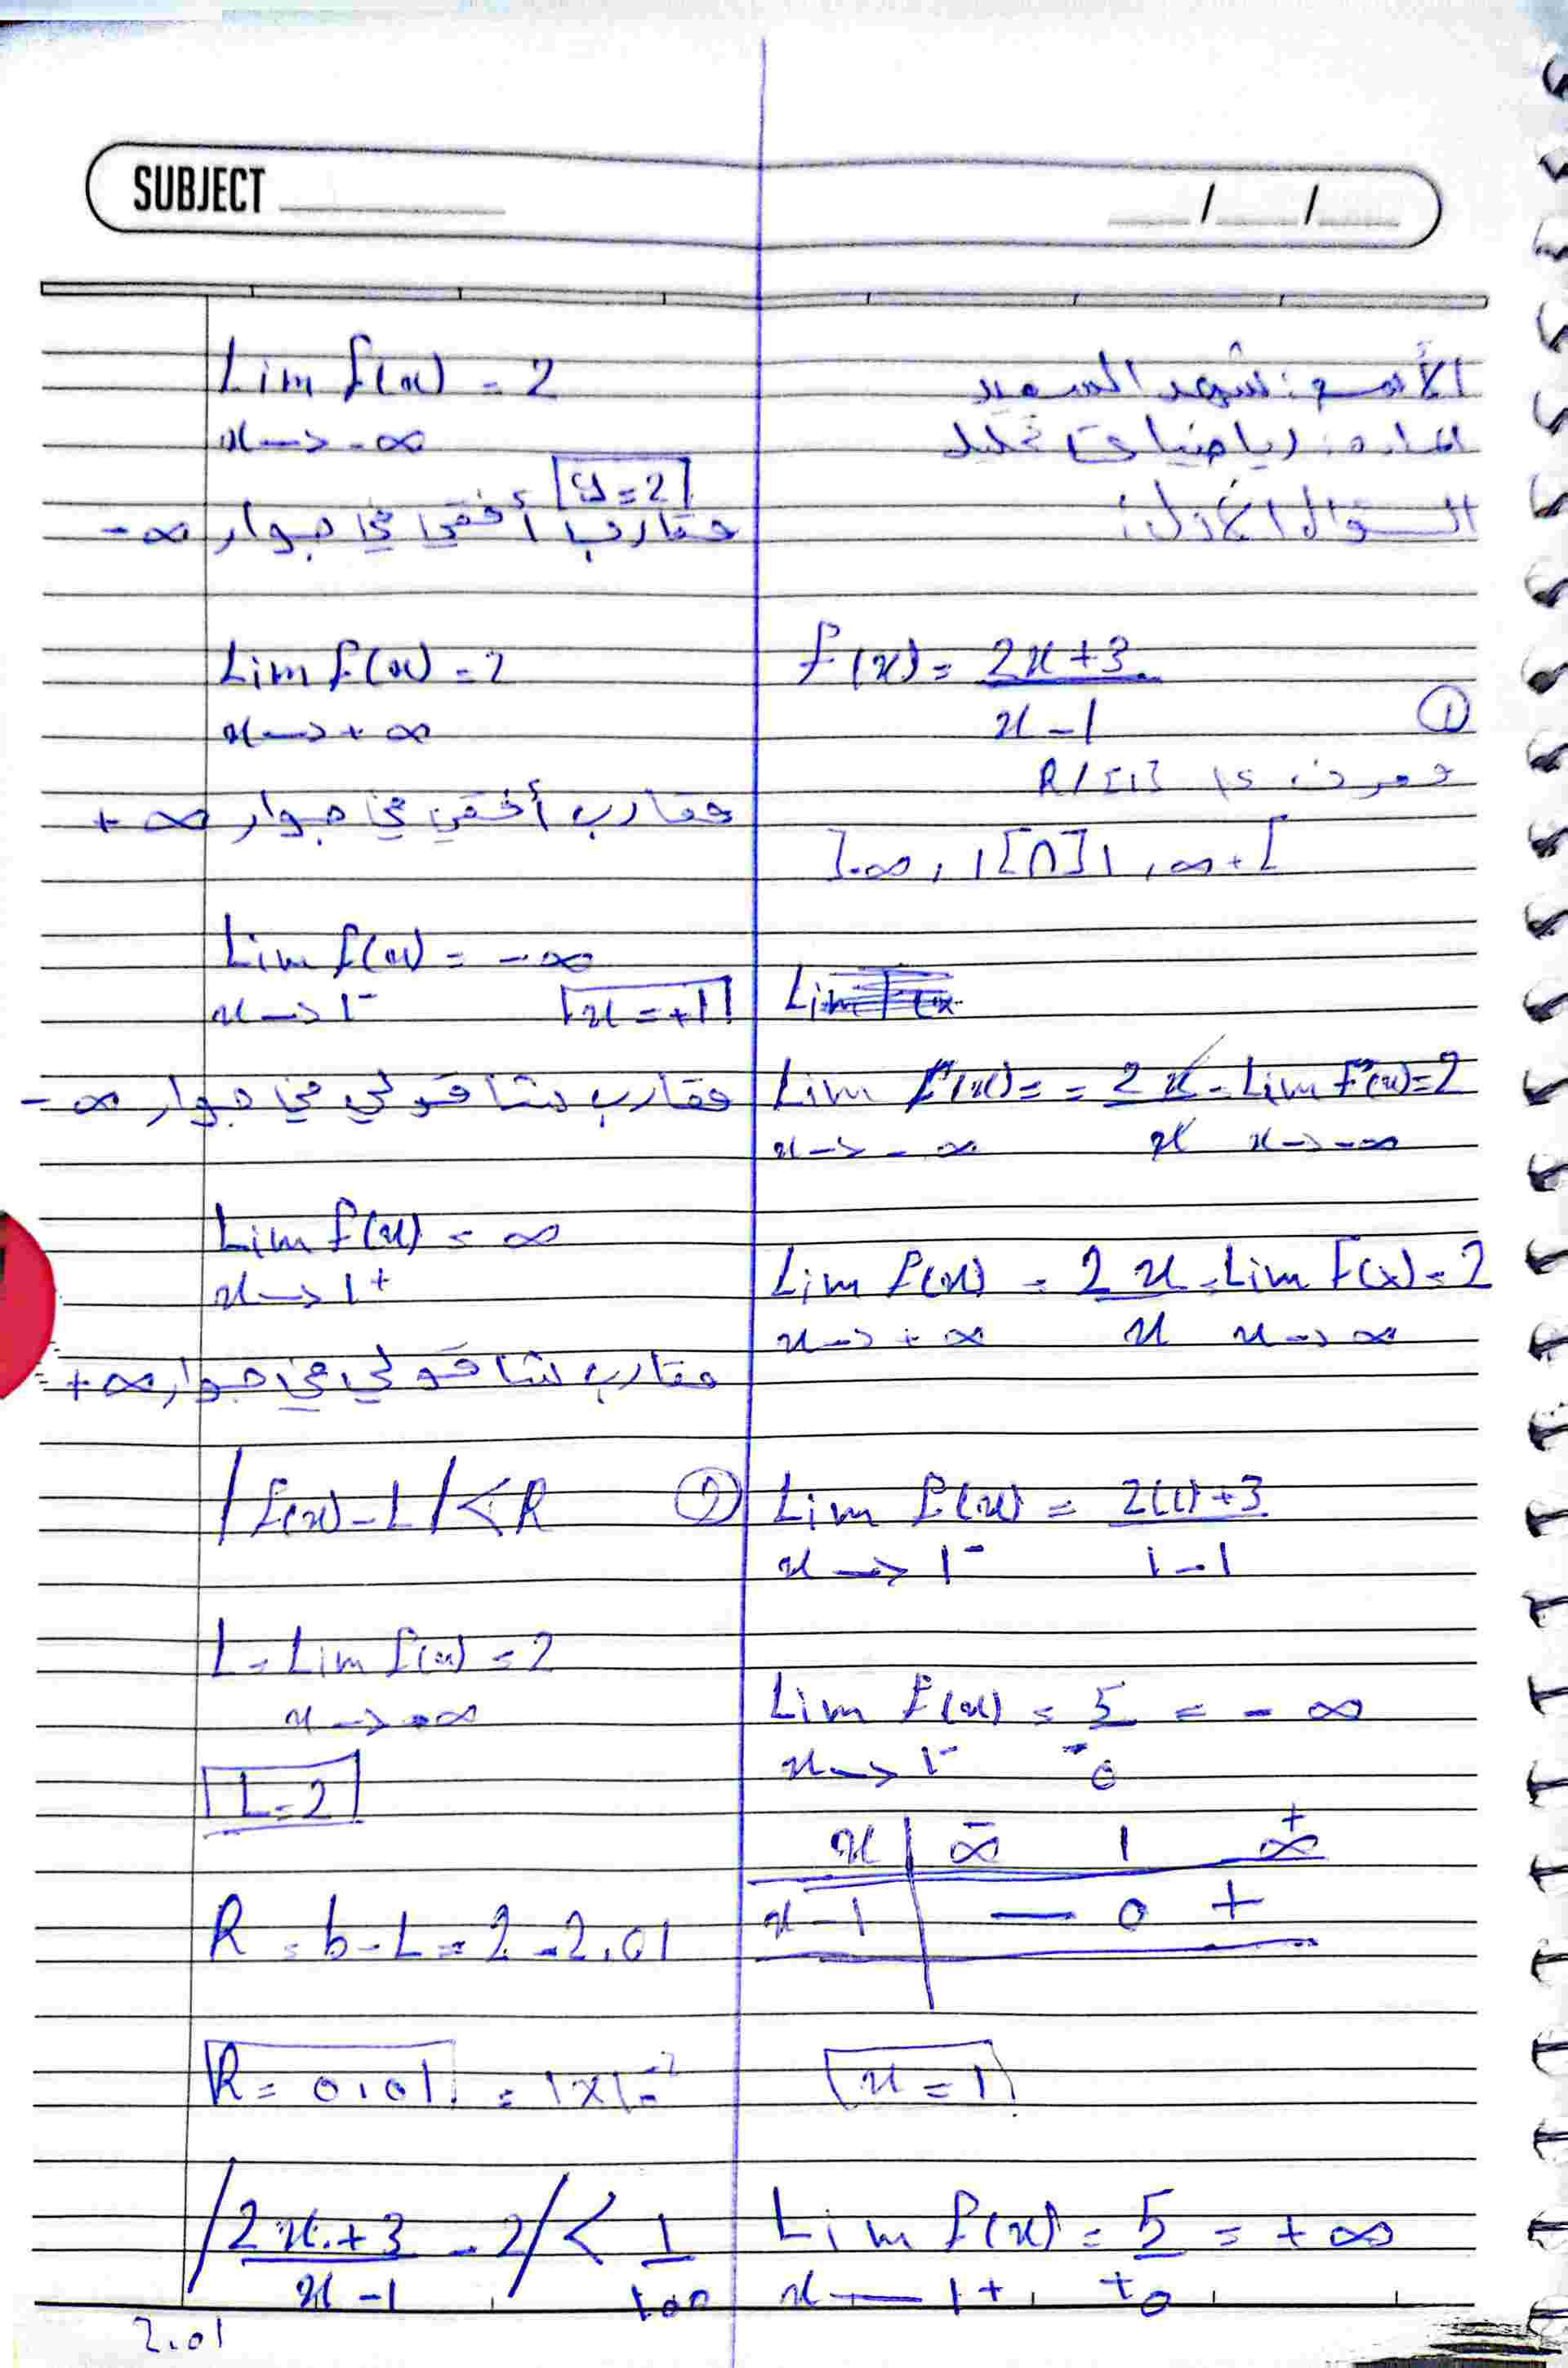 SUBJECT / /
الأسم: شهد السعيد
المادة: رياضيات تحليل
السؤال الأول:
f(x) = 2x+3
x-1 ①
معرف R/{1}
]-∞, 1[∩]1, ∞+[
Lim
Lim f(x) = = 2x = Lim f(x) = 2
x -> -∞ x x -> -∞
Lim f(x) = 2x = Lim f(x) = 2
x -> +∞ x x -> ∞
Lim f(x) = 2(1)+3
x -> 1⁻ 1-1
Lim f(x) = 5 = -∞
x -> 1⁻ ⁻0
x | -∞ 1 +∞
x-1 | — 0 +
x = 1
Lim f(x) = 5 = +∞
x — 1+ +0
Lim f(x) = 2
x -> -∞
y = 2
مقارب أفقي في جوار ∞-
Lim f(x) = 2
x -> +∞
مقارب أفقي في جوار ∞+
Lim f(x) = -∞
x -> 1⁻ x = +1
مقارب شاقولي في جوار ∞-
Lim f(x) = ∞
x -> 1+
مقارب شاقولي في جوار ∞+
|f(x) - L| < R ②
L = Lim f(x) = 2
x -> +∞
L = 2
R = b - L = 2 - 2,01
R = 0,01 = 1x10⁻²
|2x+3 - 2| < 1
x-1 100
2.01